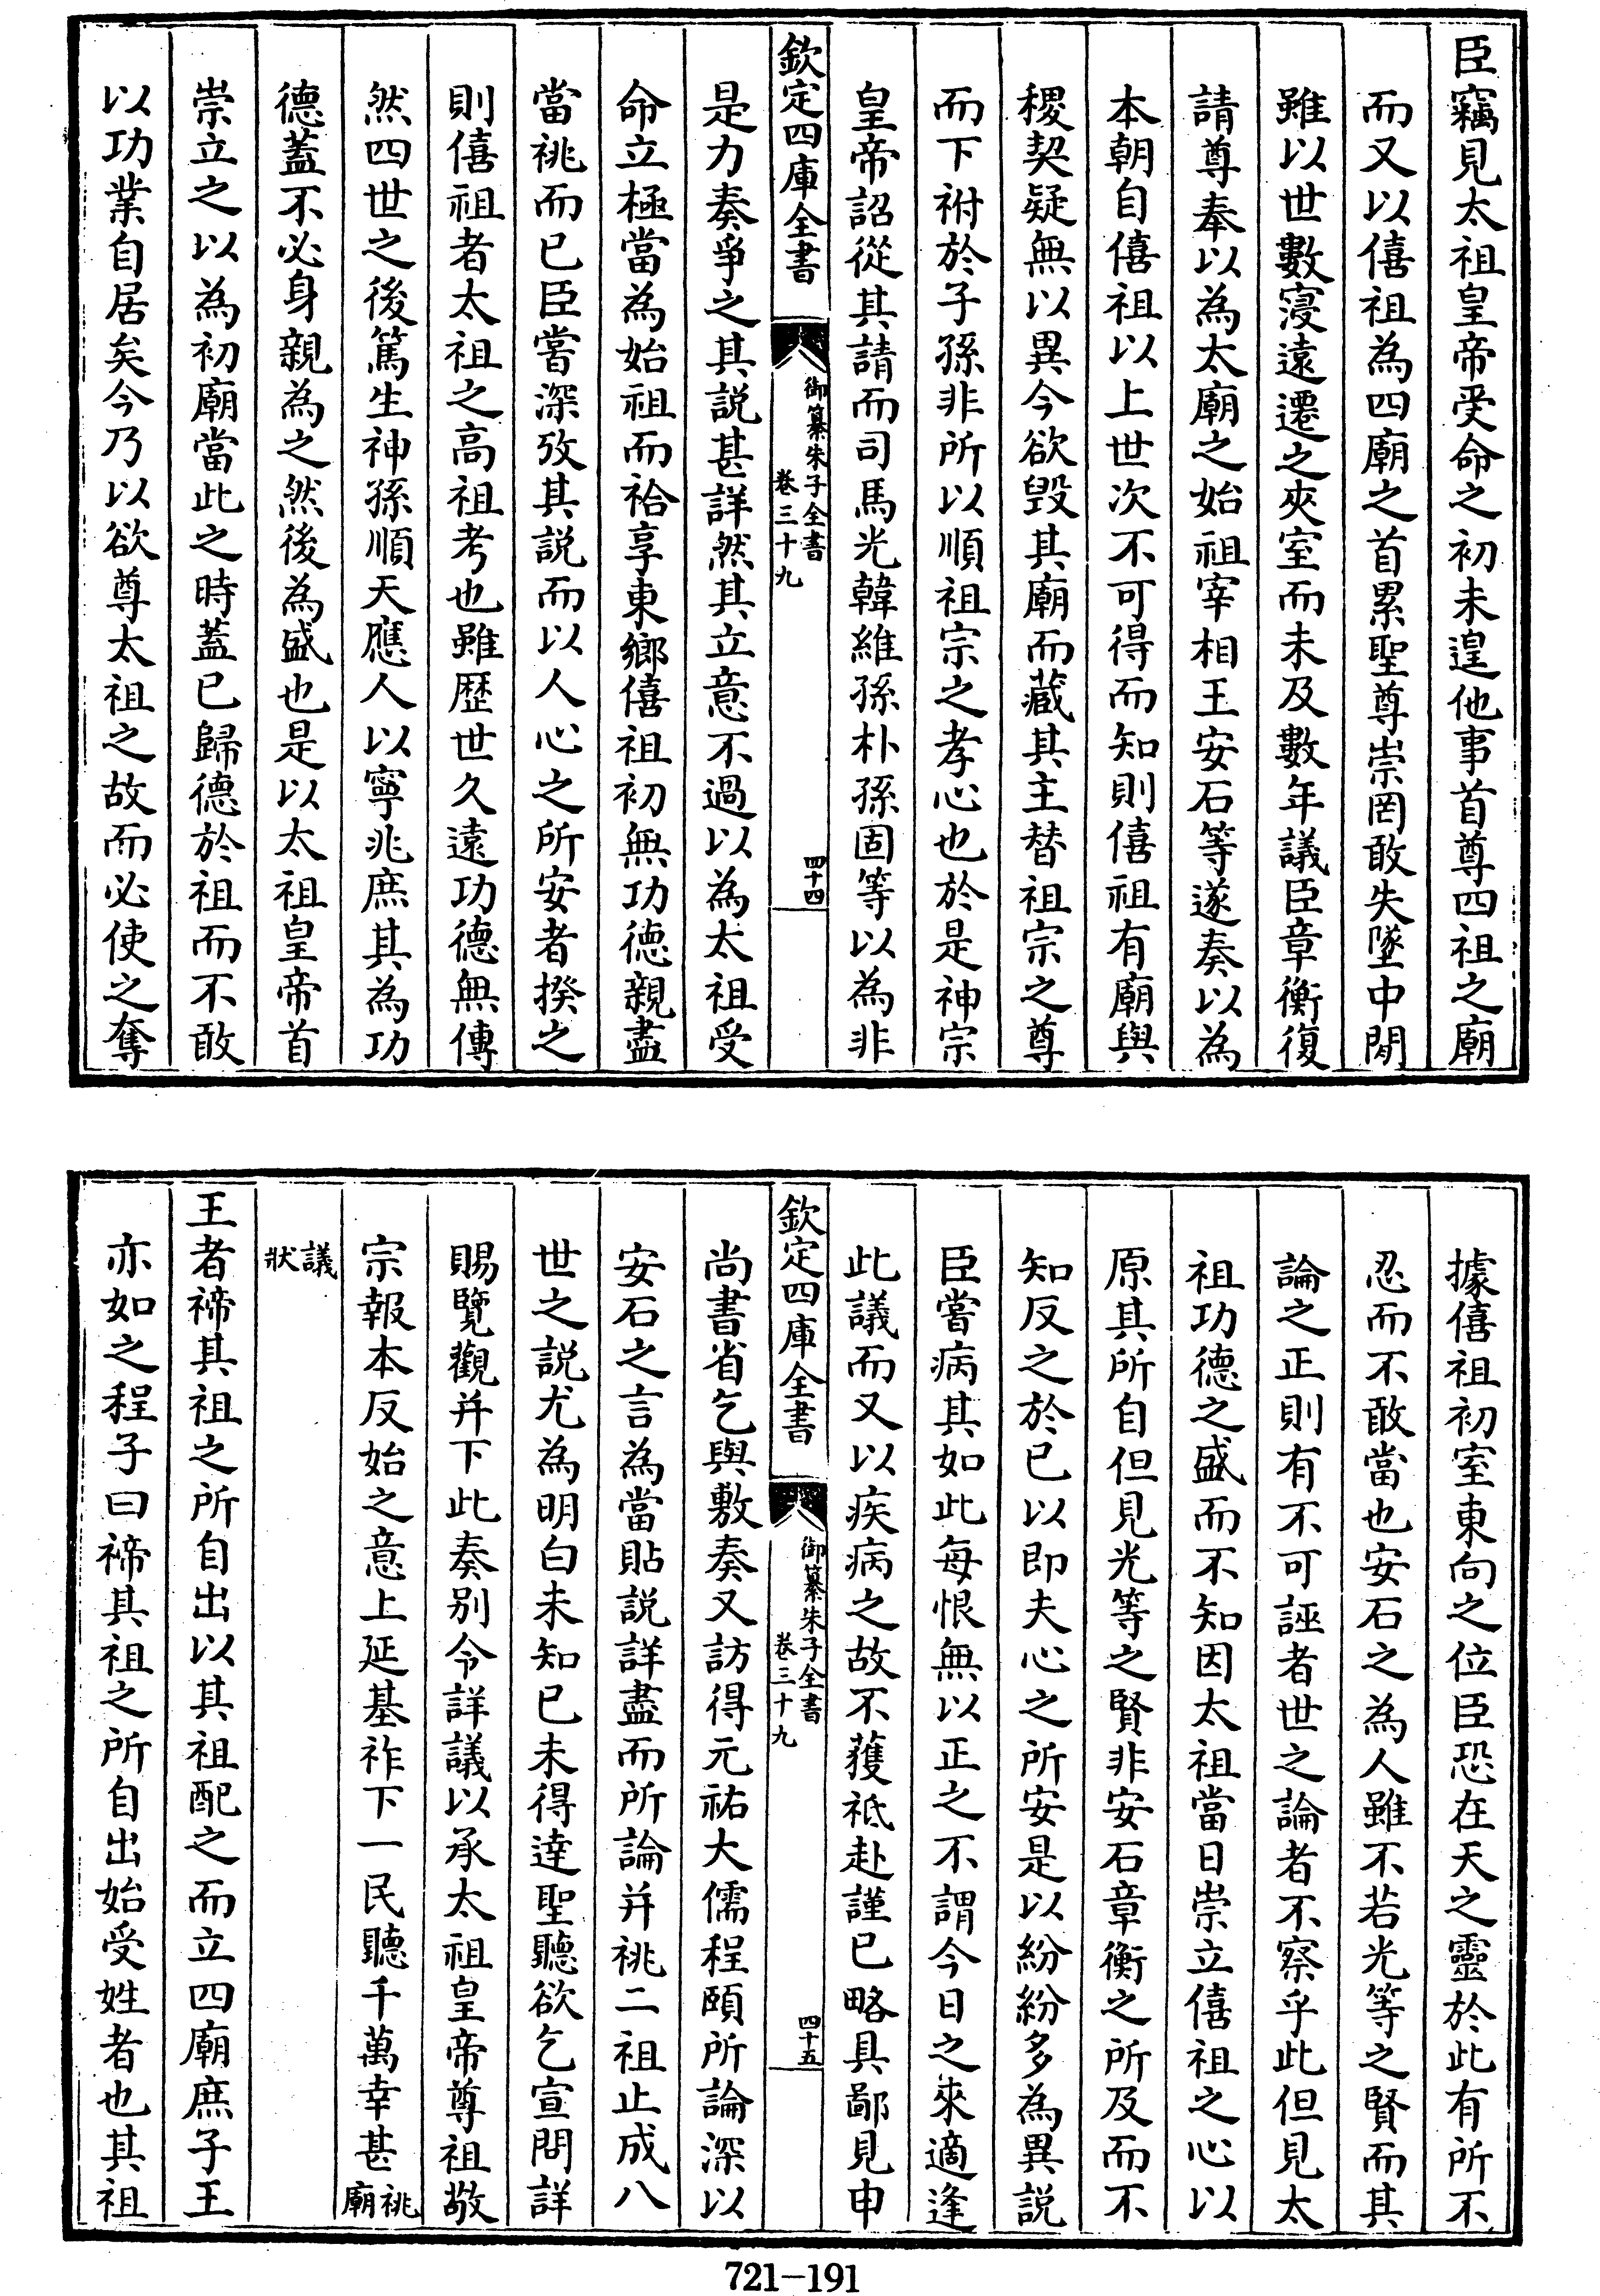 臣竊見太祖皇帝受命之初未遑他事首尊四祖之廟
而又以僖祖為四廟之首累聖尊崇罔敢失墜中閒
雖以世數寖遠遷之夾室而未及數年議臣章衡復
請尊奉以為太廟之始祖宰相王安石等遂奏以為
本朝自僖祖以上世次不可得而知則僖祖有廟與
稷契疑無以異今欲毀其廟而藏其主替祖宗之尊
而下祔於子孫非所以順祖宗之孝心也於是神宗
皇帝詔從其請而司馬光韓維孫朴孫固等以為非
欽定四庫全書
御纂朱子全書
卷三十九
四十四
是力奏爭之其説甚詳然其立意不過以為太祖受
命立極當為始祖而祫享東鄉僖祖初無功德親盡
當祧而已臣嘗深攷其説而以人心之所安者揆之
則僖祖者太祖之高祖考也雖歴世久遠功德無傳
然四世之後篤生神孫順天應人以寧兆庶其為功
德蓋不必身親為之然後為盛也是以太祖皇帝首
崇立之以為初廟當此之時蓋已歸德於祖而不敢
以功業自居矣今乃以欲尊太祖之故而必使之奪
據僖祖初室東向之位臣恐在天之靈於此有所不
忍而不敢當也安石之為人雖不若光等之賢而其
論之正則有不可誣者世之論者不察乎此但見太
祖功德之盛而不知因太祖當日崇立僖祖之心以
原其所自但見光等之賢非安石章衡之所及而不
知反之於已以即夫心之所安是以紛紛多為異説
臣嘗病其如此每恨無以正之不謂今日之來適逢
此議而又以疾病之故不獲祗赴謹已略具鄙見申
欽定四庫全書
御纂朱子全書
卷三十九
四十五
尚書省乞與敷奏又訪得元祐大儒程頤所論深以
安石之言為當貼説詳盡而所論并祧二祖止成八
世之説尤為明白未知已未得達聖聽欲乞宣問詳
賜覽觀并下此奏别令詳議以承太祖皇帝尊祖敬
宗報本反始之意上延基祚下一民聽千萬幸甚祧廟
議狀
王者禘其祖之所自出以其祖配之而立四廟庶子王
亦如之程子曰禘其祖之所自出始受姓者也其祖
721-191